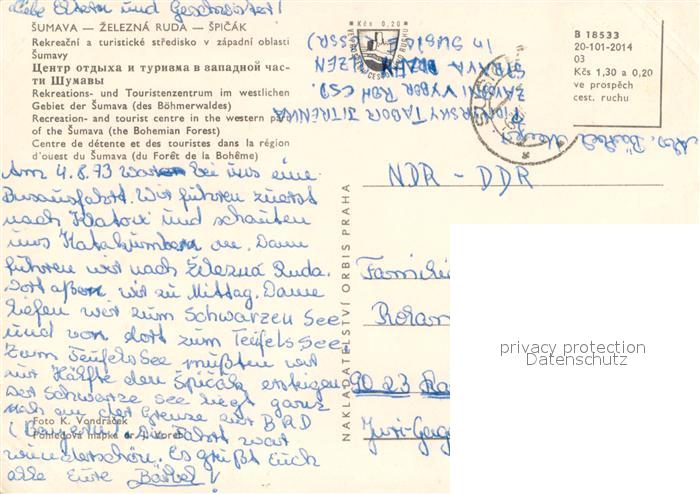 Liebe Eltern und Geschwister!
ŠUMAVA — ŽELEZNÁ RUDA — ŠPIČÁK
Rekreační a turistické středisko v západní oblasti
Šumavy
Центр отдыха и туризма в западной час-
ти Шумавы
Rekreations- und Touristenzentrum im westlichen
Gebiet der Šumava (des Böhmerwaldes)
Recreation- and tourist centre in the western part
of the Šumava (the Bohemian Forest)
Centre de détente et des touristes dans la région
d'ouest du Šumava (du Forêt de la Bohême)
Am 4.8.73 war bei uns eine
Busausfahrt. Wir führen zuerst
nach Klatovi und schauten
uns Katakumben an. Dann
führen wir nach Železná Ruda.
Dort aßen wir zu Mittag. Dann
liefen wir zum Schwarzen See
und von dort zum Teufels See.
Zum Teufels See mußten wir
zur Hälfte den Špičák ersteigen.
Der Schwarze See liegt ganz
nah an der Grenze zur BRD
(Bayern). Die Fahrt war
wunderschön. Es grüßt Euch
alle Eure Bärbel!
Foto K. Vondráček
Pohledová mapka dr. J. Vorel
NAKLADATELSTVÍ ORBIS PRAHA
Kčs 0,20
B 18533
20-101-2014
03
Kčs 1,30 a 0,20
ve prospěch
cest. ruchu
Bärbel
PIONÝRSKÝ TÁBOR JITŘENKA
ZÁVODNÍ VÝBOR ROH ČSD
PLZEN
IN SUŠICE (ČSSR)
NDR - DDR
Familie
90 23
privacy protection
Datenschutz